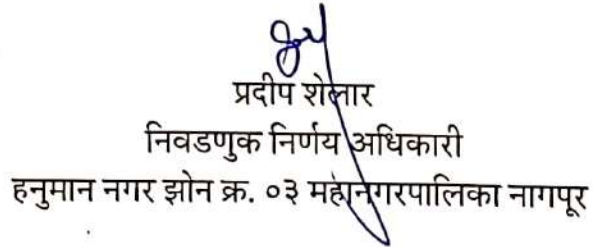 प्रदीप शेलार
निवडणुक निर्णय अधिकारी
हनुमान नगर झोन क्र. ०३ महानगरपालिका नागपूर